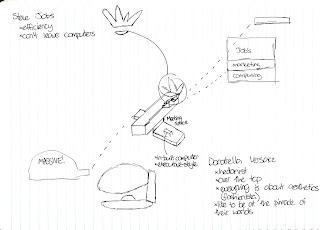 Steve Jobs
*efficiency
*can't leave computers
Jobs
marketing
computing
Meeting
space
MASSIVE!
*in-built computer
*executive-style
Donatella Versace
*hedonist
*over the top
*everything is about aesthetics
(fashionista)
*like to be at the pinnacle of
their worlds